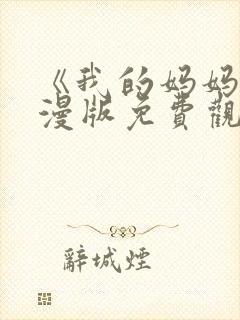 《我的妈妈
漫版免費觀
辭城煙